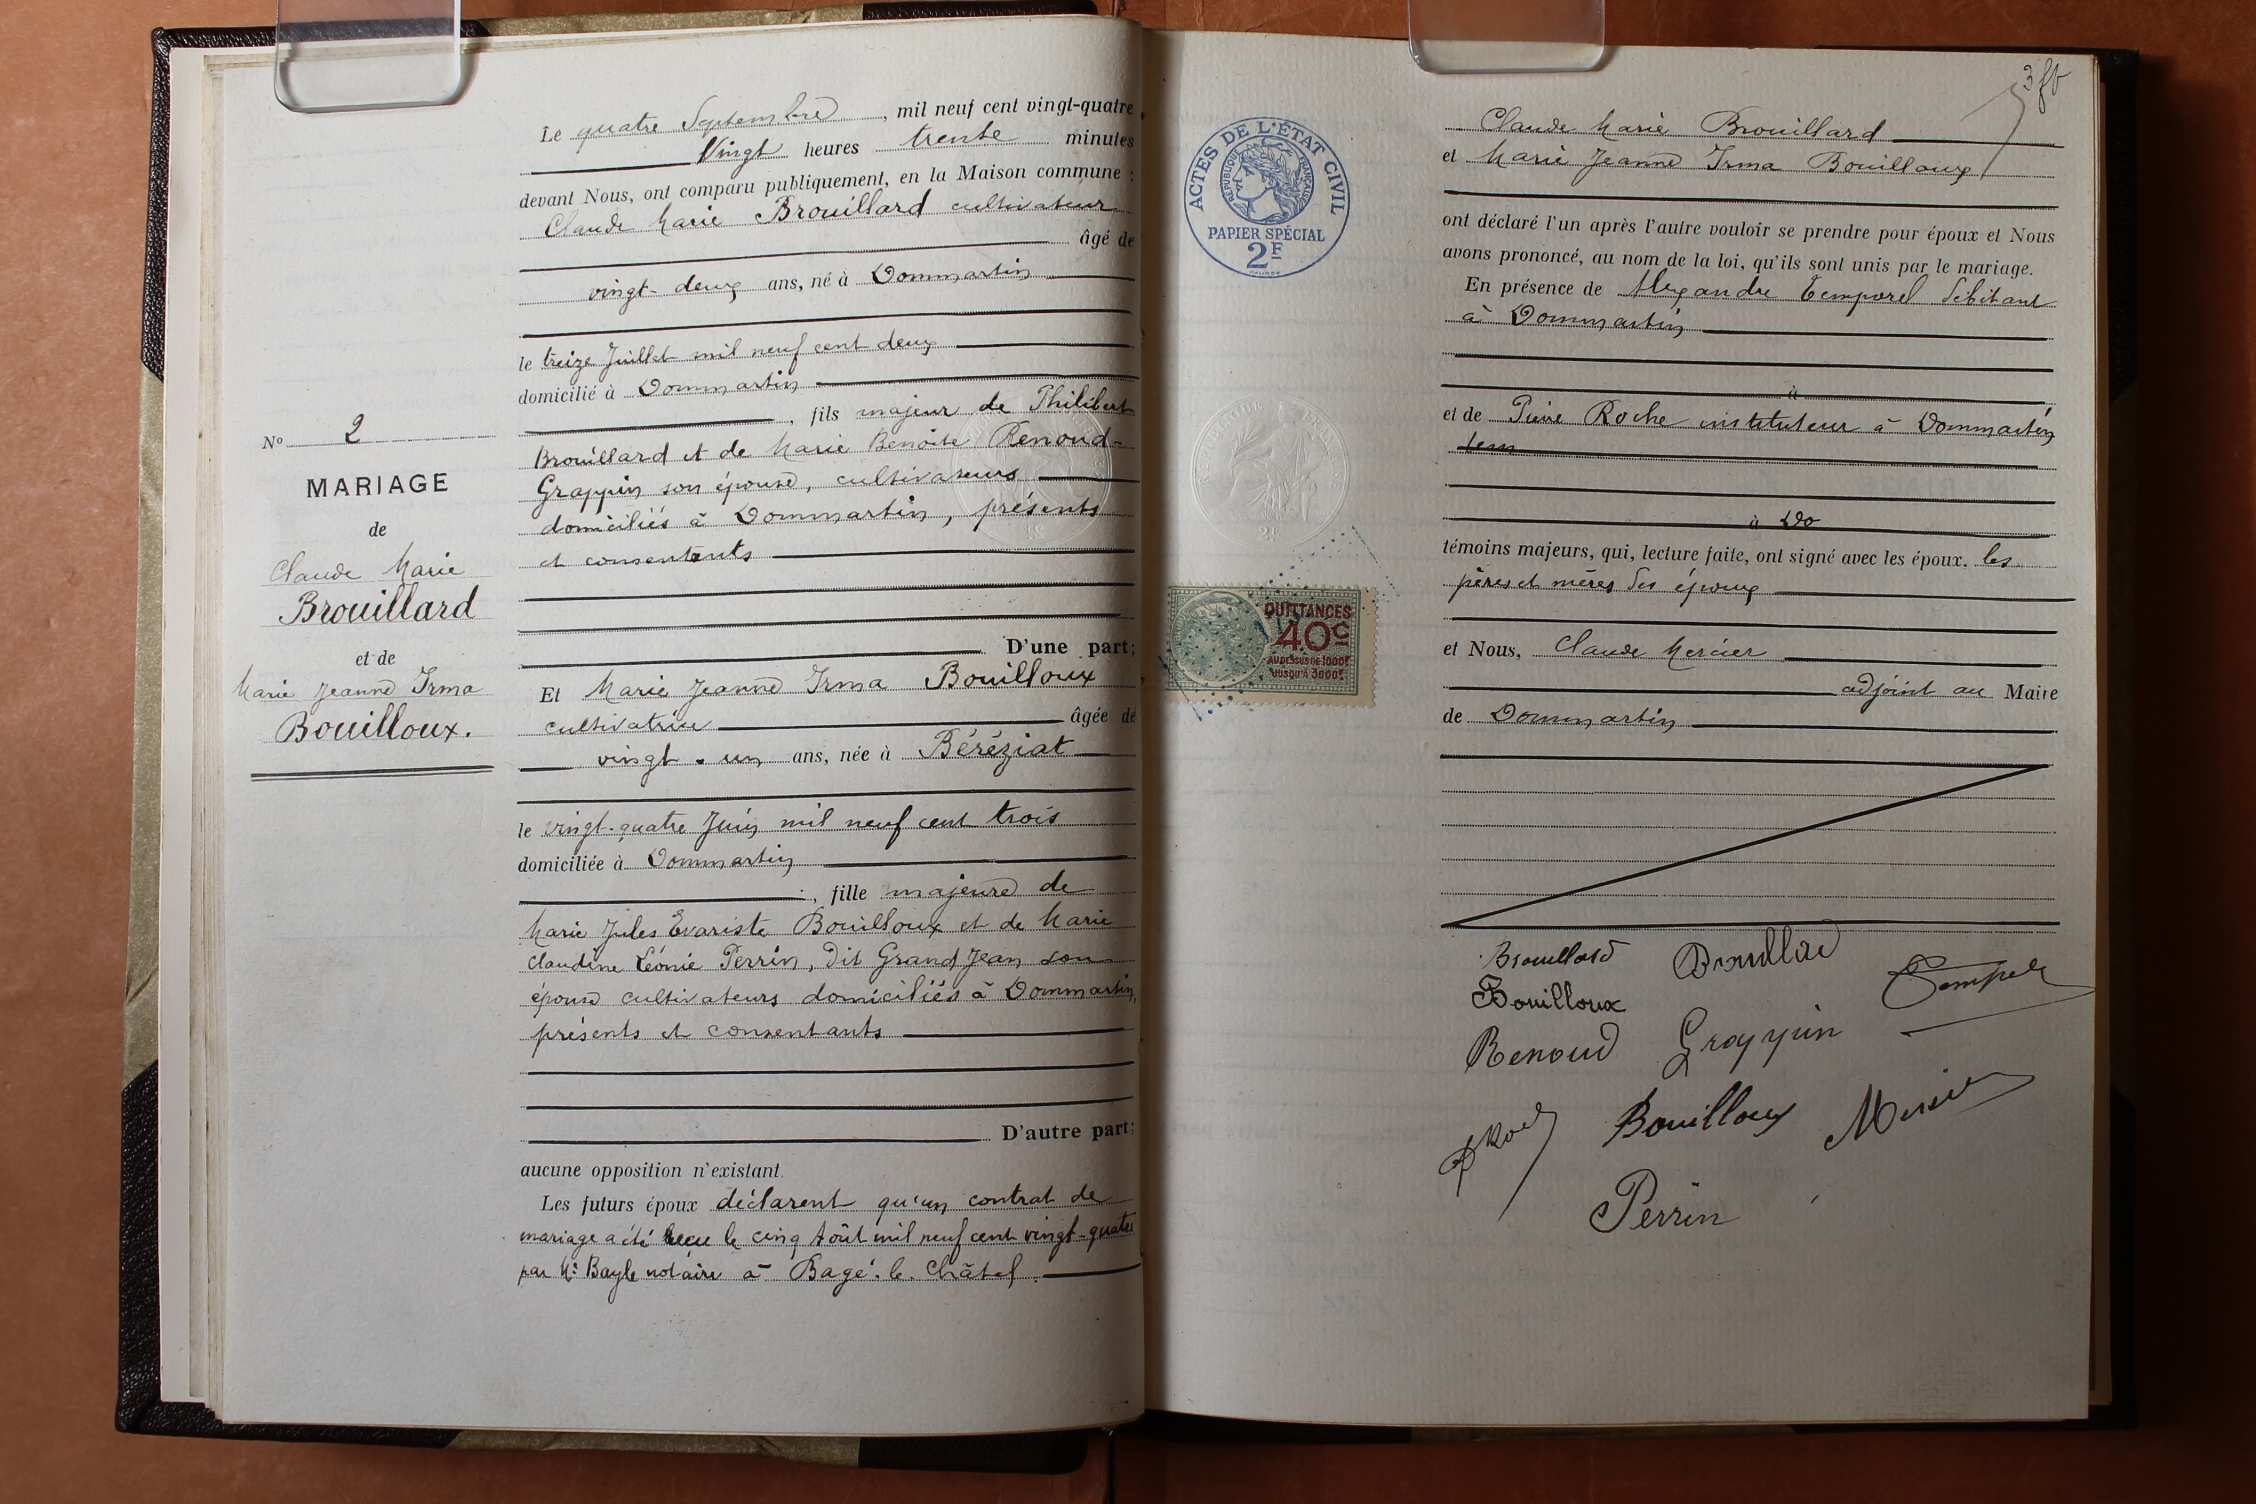 N° 2
MARIAGE
de
Claude Marie
Brouillard
et de
Marie Jeanne Irma
Bouilloux.
Le quatre Septembre, mil neuf cent vingt-quatre
Vingt heures trente minutes
devant Nous, ont comparu publiquement, en la Maison commune :
Claude Marie Brouillard cultivateur
âgé de
vingt-deux ans, né à Dommartin
le treize Juillet mil neuf cent deux
domicilié à Dommartin
, fils majeur de Philibert
Brouillard et de Marie Benoite Renoud-
Grappin son épouse, cultivateurs
domiciliés à Dommartin, présents
et consentants
D'une part;
Et Marie Jeanne Irma Bouilloux
cultivatrice âgée de
vingt-un ans, née à Béréziat
le vingt-quatre Juin mil neuf cent trois
domiciliée à Dommartin
, fille majeure de
Marie Jules Evariste Bouilloux et de Marie
Claudine Léonie Perrin, dit Grand Jean son
épouse cultivateurs domiciliés à Dommartin,
présents et consentants
D'autre part;
aucune opposition n'existant.
Les futurs époux déclarent qu'un contrat de
mariage a été reçu le cinq Août mil neuf cent vingt-quatre
par Me Bayle notaire à Bagé-le-Châtel.
ACTES DE L'ÉTAT CIVIL
RÉPUBLIQUE FRANÇAISE
PAPIER SPÉCIAL
2F
QUITTANCES
40c
AU DESSUS DE 1000f
JUSQU'À 3000f
3
Claude Marie Brouillard
et Marie Jeanne Irma Bouilloux
ont déclaré l'un après l'autre vouloir se prendre pour époux et Nous
avons prononcé, au nom de la loi, qu'ils sont unis par le mariage.
En présence de Alexandre Temporel débitant
à Dommartin
à
et de Pierre Roche instituteur à Dommartin
à Do
témoins majeurs, qui, lecture faite, ont signé avec les époux. les
pères et mères des époux
et Nous, Claude Mercier
adjoint au Maire
de Dommartin
Brouillard Brouillard
Bouilloux Temporel
Renoud Grappin
Bouilloux Mercier
Perrin